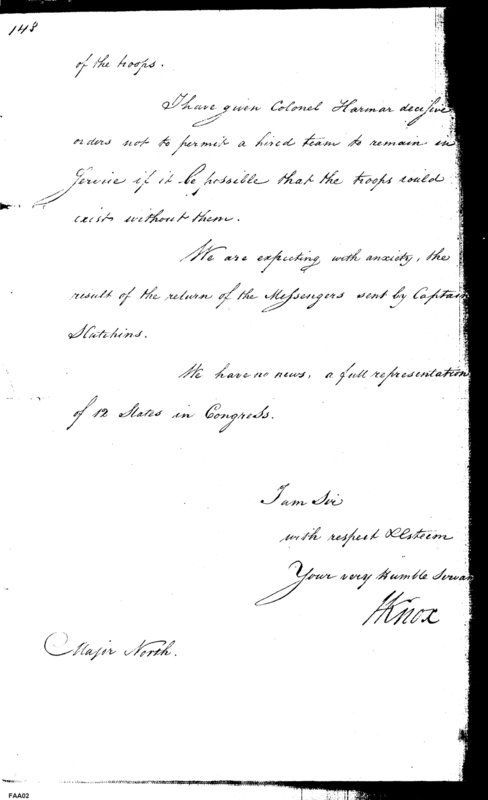 148
of the troops.
I have given Colonel Harmar decisive
orders not to permit a hired team to remain in
Service if it be possible that the troops could
exist without them.
We are expecting with anxiety, the
result of the return of the Messengers sent by Captain
Hutchins.
We have no news, a full representation
of 12 States in Congress.
I am Sir
with respect & Esteem
Your very Humble Servan
HKnox
Major North.
FAA02